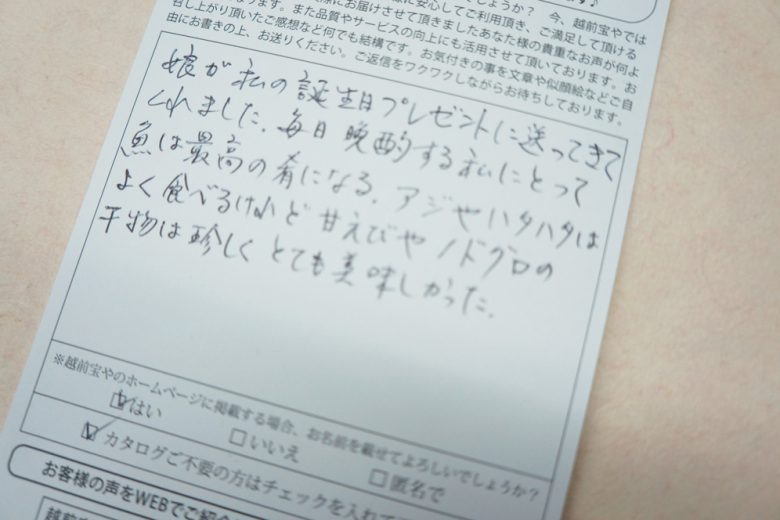 しょうか？ 今、越前宝やでは
安心してご利用頂き、ご満足して頂ける
にお届けさせて頂きましたあなた様の貴重なお声が何よ
召し上がり頂いたご感想など何でも結構です。お気付きの事を文章や似顔絵などご自
由にお書きの上、お送りください。ご返信をワクワクしながらお待ちしております。
また品質やサービスの向上にも活用させて頂いております。お
娘が私の誕生日プレゼントに送ってきて
くれました。毎日晩酌する私にとって
魚は最高の肴になる。アジやハタハタは
よく食べるけれど甘えびやノドグロの
干物は珍しくとても美味しかった。
※越前宝やのホームページに掲載する場合、お名前を載せてよろしいでしょうか？
はい □いいえ □匿名で
カタログご不要の方はチェックを入れて
お客様の声をWEBでご紹介